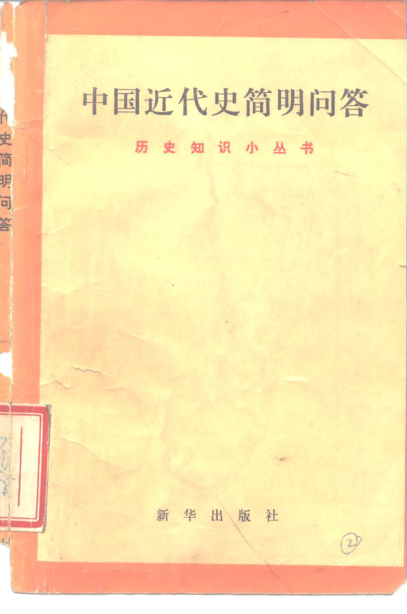 中国近代史简明问答
历史知识小丛书
代史简明问答
新华出版社
②